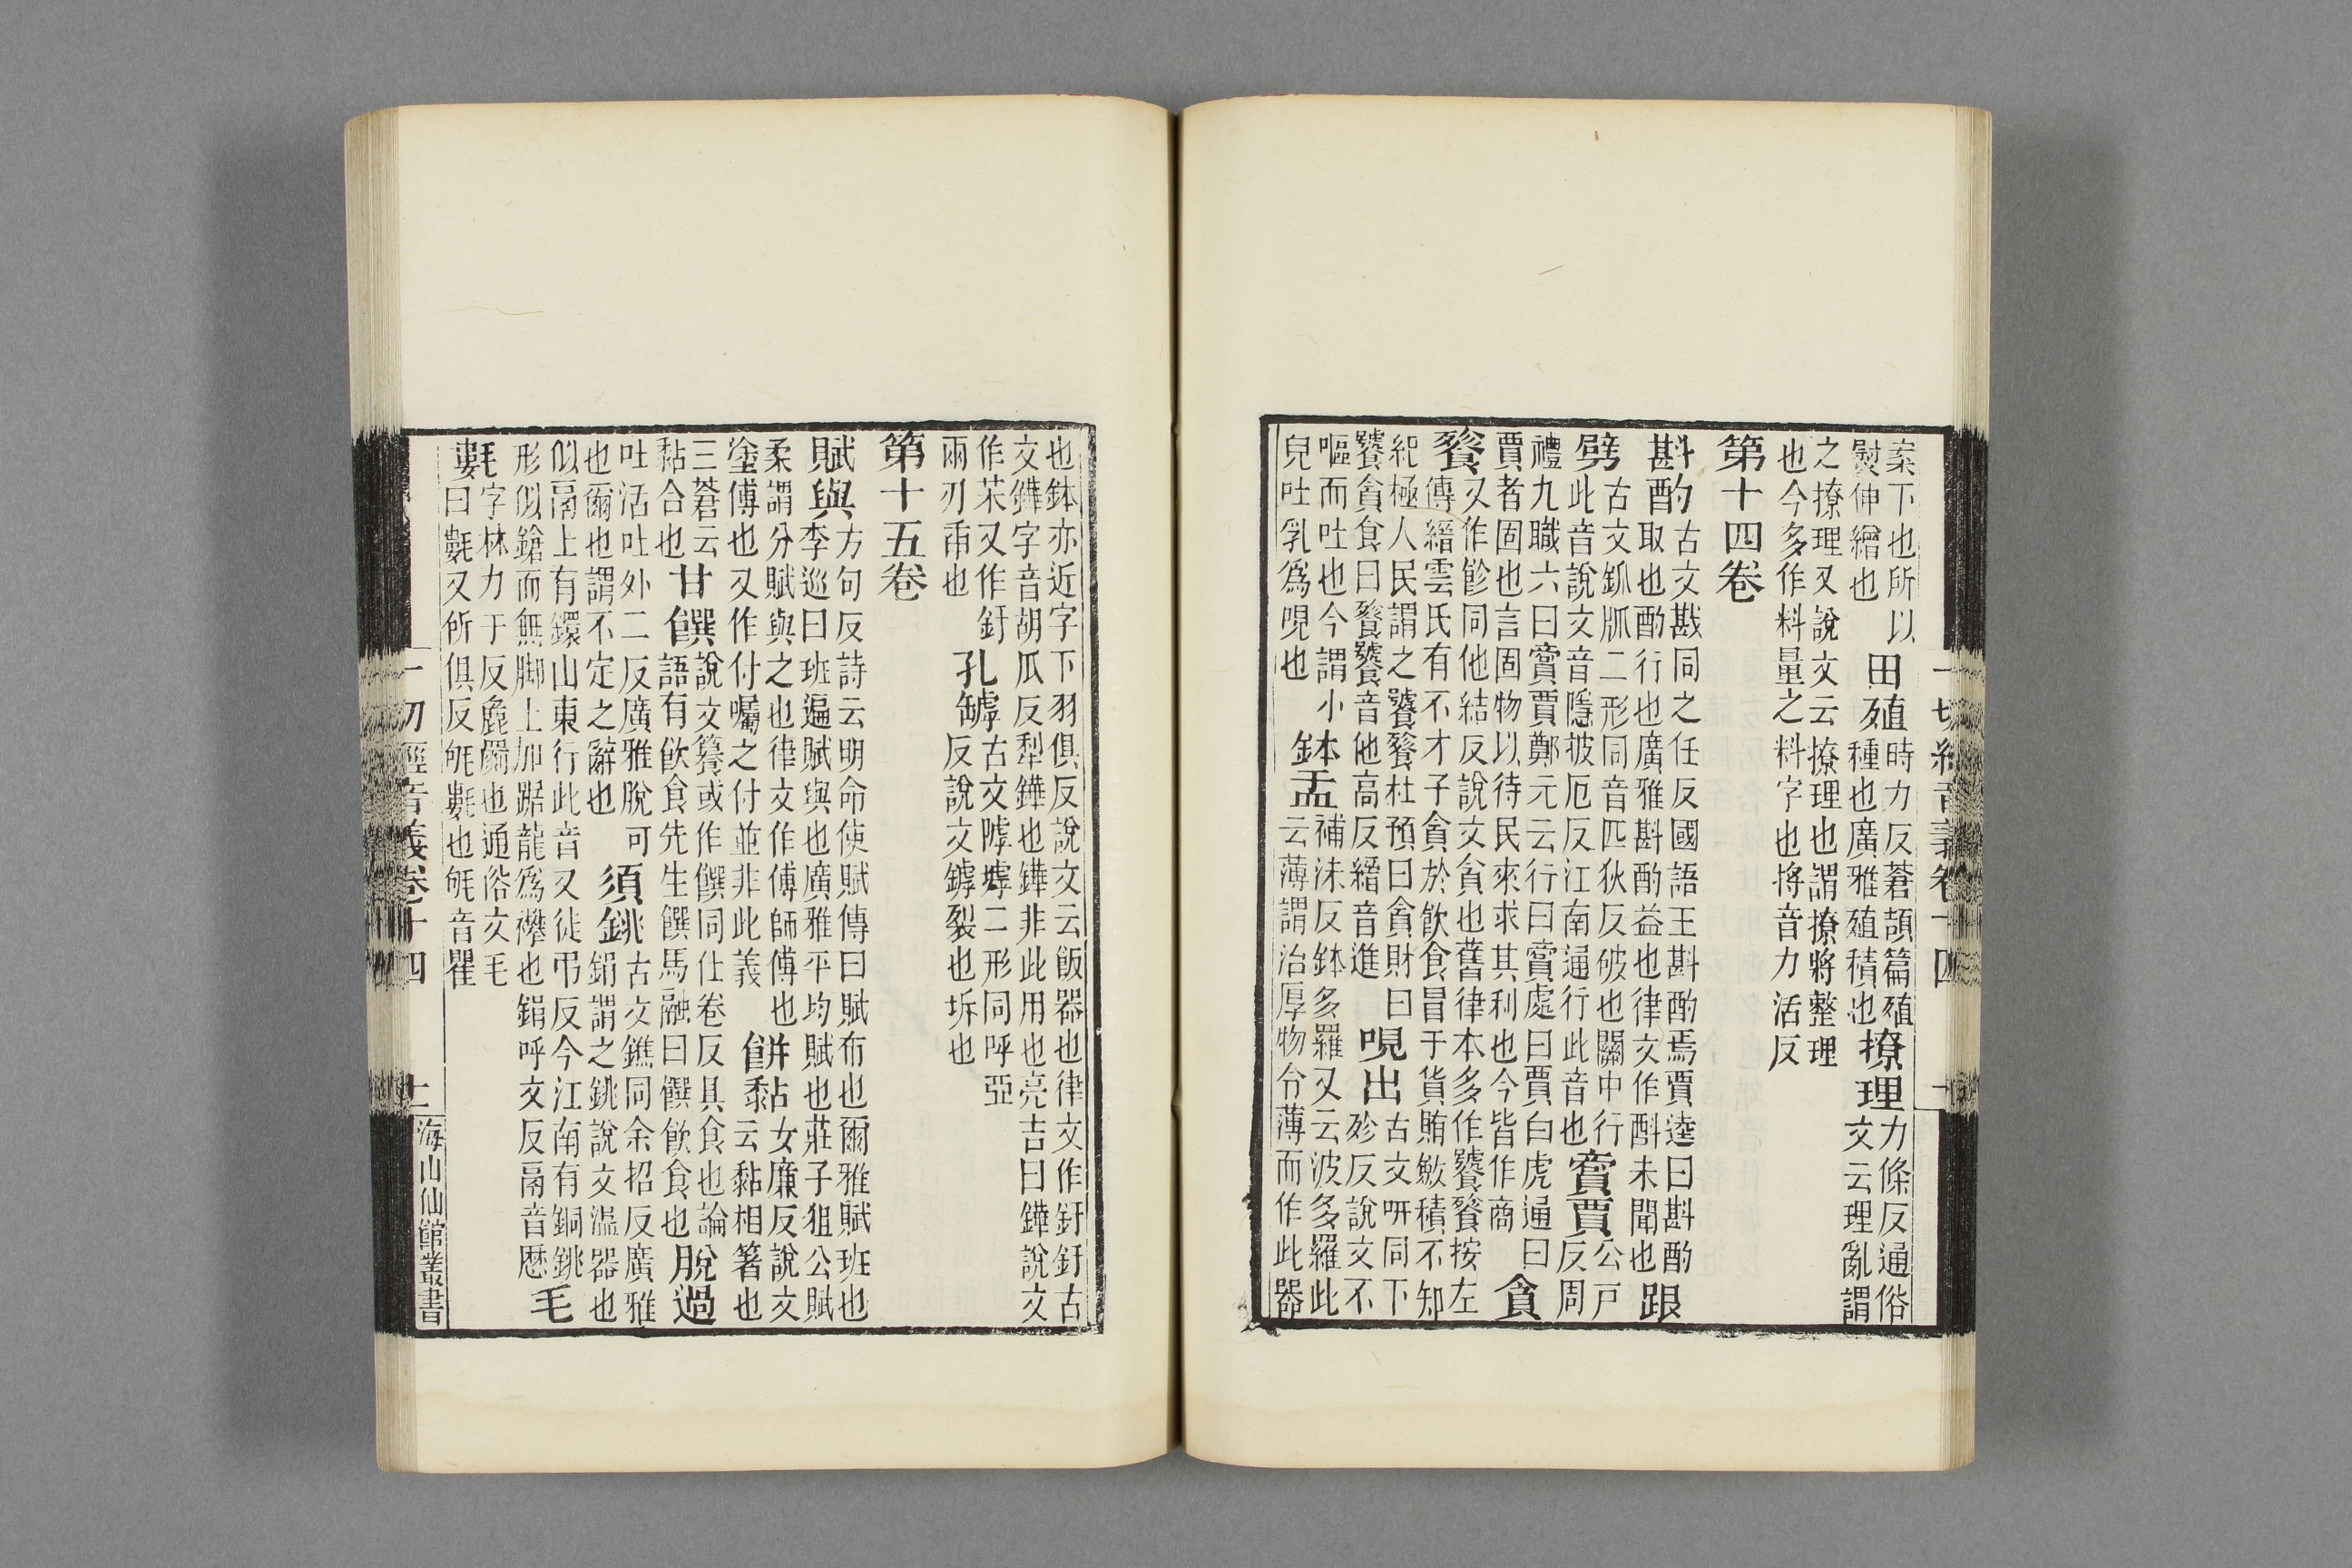 案下也所以
熨伸繒也
田殖
時力反蒼頡篇殖
種也廣雅殖積也
撩理
力條反通俗
文云理亂謂
之撩理又說文云撩理也謂撩將整理
也今多作料量之料字也捋音力活反
第十四卷
斟酌
古文㪺同之任反國語王斟酌焉賈逵曰斟酌
取也酌行也廣雅斟酌益也律文作斟未聞也
𨁝
劈
古文釽𤖴二形同音匹狄反破也關中行
此音說文音隱披厄反江南通行此音也
𧶜賈
公戸
反周
禮九職六曰𧶜賈鄭元云行曰𧶜處曰賈白虎通曰
賈者固也言固物以待民來求其利也今皆作商
貪
餮
又作飻同他結反說文貪也舊律本多作饕餮按左
傳縉雲氏有不才子貪於飲食冒于貨賄斂積不知
紀極人民謂之饕餮杜預曰貪財曰
饕貪食曰餮饕音他高反縉音進
哯出
古文咞同下
殄反說文不
嘔而吐也今謂小
兒吐乳爲哯也
鉢盂
補沫反鉢多羅又云波多羅此
云薄謂治厚物令薄而作此器
也鉢亦近字下羽俱反說文云飯器也律文作釪釪古
文鏵字音胡瓜反犁鏵也鏵非此用也亮吉曰鏵說文
作茉又作釪
兩刃臿也
孔罅
古文𨻶㙤二形同呼亞
反說文罅裂也坼也
第十五卷
賦與
方句反詩云明命使賦傳曰賦布也爾雅賦班也
李巡曰班遍賦與也廣雅平均賦也莊子狙公賦
柔謂分賦與之也律文作傅師傅也
塗傅也又作付囑之付並非此義
餅黏
女廉反說文
云黏相箸也
三蒼云
黏合也
甘饌
說文籑或作饌同仕卷反具食也論
語有飲食先生饌馬融曰饌飲食也
脫過
吐活吐外二反廣雅脫可
也爾也謂不定之辭也
須銚
古文鐎同余招反廣雅
鋗謂之銚說文温器也
似鬲上有鐶山東行此音又徒弔反今江南有銅銚
形似鎗而無脚上加踞龍爲襻也鋗呼玄反鬲音歷
毛
𣯫
字林力于反麁罽也通俗文毛
𣰽曰𣯫又所俱反㲘𣯫也㲘音瞿
一切經音義卷十四
海山仙館叢書